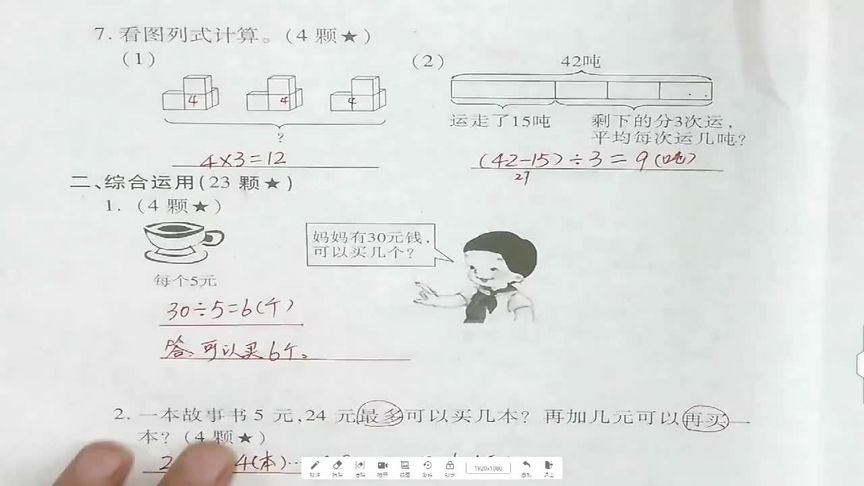 7. 看图列式计算。(4 颗★)
(1)
(2)
42吨
4 4 4
?
运走了15吨
剩下的分3次运,
平均每次运几吨?
4×3=12
(42-15)÷3=9(吨)
27
二、综合运用(23 颗★)
1. (4 颗★)
妈妈有30元钱,
可以买几个?
每个5元
30÷5=6(个)
答:可以买6个。
2. 一本故事书 5 元,24 元最多可以买几本? 再加几元可以再买一
本? (4 颗★)
4(本)
1920x1080